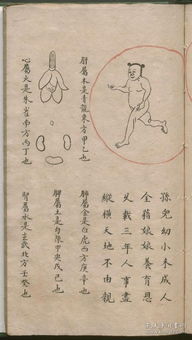 孫兒幼小未成人
全籍娘娘養育恩
載三年人事盡
縱橫天地不由親
肝屬木是青龍東方甲乙也
肺屬金是白虎西方庚辛也
脾屬土是勾陳中央戊己也
心屬火是朱雀南方丙丁也
腎屬水是玄武北方壬癸也